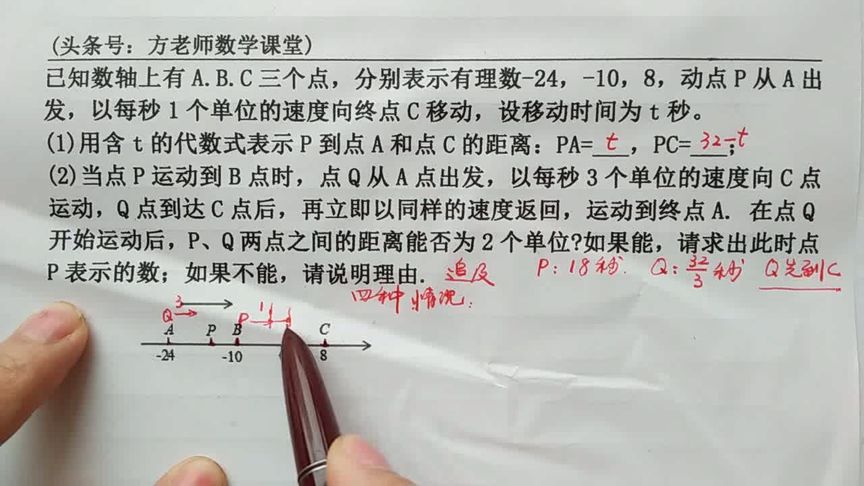 (头条号：方老师数学课堂)
已知数轴上有 A.B.C 三个点，分别表示有理数-24，-10，8，动点 P 从 A 出
发，以每秒 1 个单位的速度向终点 C 移动，设移动时间为 t 秒。
(1)用含 t 的代数式表示 P 到点 A 和点 C 的距离：PA=t，PC=32-t；
(2)当点 P 运动到 B 点时，点 Q 从 A 点出发，以每秒 3 个单位的速度向 C 点
运动，Q 点到达 C 点后，再立即以同样的速度返回，运动到终点 A. 在点 Q
开始运动后，P、Q 两点之间的距离能否为 2 个单位?如果能，请求出此时点
P 表示的数；如果不能，请说明理由. 追及 P：18秒. Q：32/3秒 Q先到C
四种情况：
3 1
Q P
A P B C
-24 -10 8